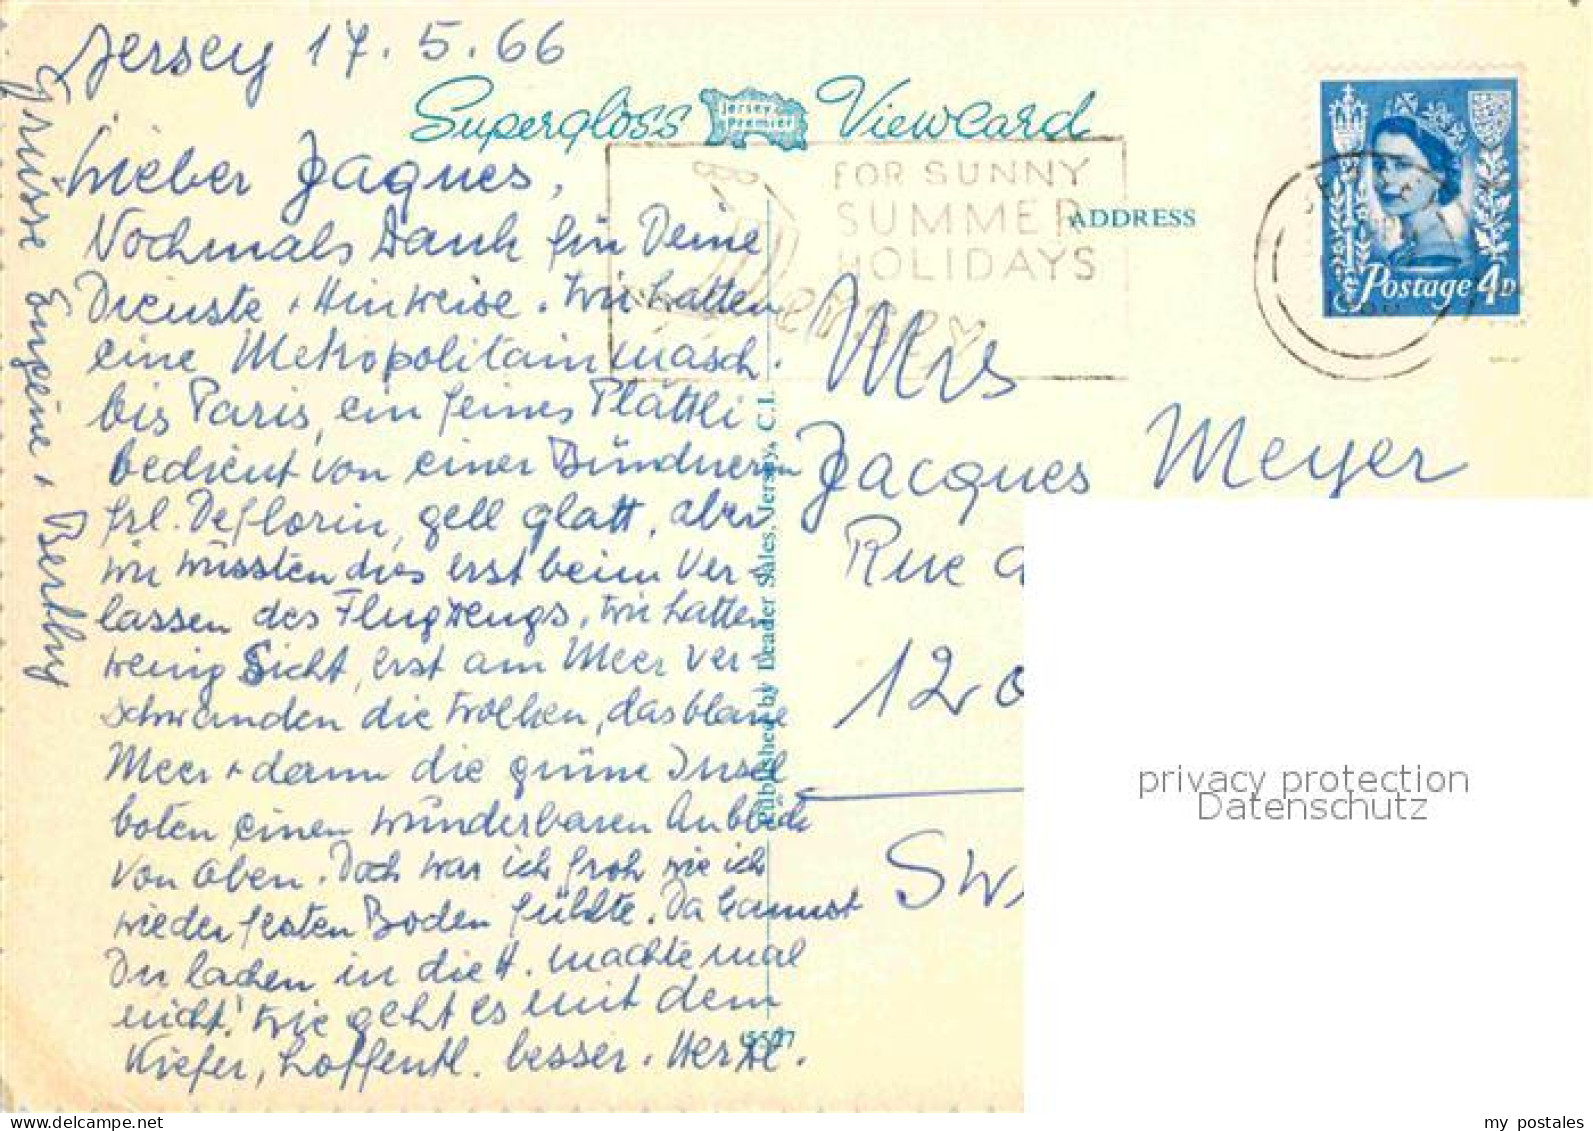 Jersey 17.5.66
Supergloss Jersey Premier Viewcard
Lieber Jaques,
Nochmals Dank für Deine
Dienste + Hinweise. Wir hatten
eine Metropolitain masch.
bis Paris, ein feines Plättli
bedient von einer Bündnerin
Frl. Deflorin, gell glatt, aber
wir wussten dies erst beim Ver-
lassen des Flugzeugs. Wir hatten
wenig Sicht, erst am Meer ver-
schwanden die Wolken, das blaue
Meer + dann die grüne Insel
boten einen wunderbaren Anblick
von oben. Doch war ich froh wie ich
wieder festen Boden fühlte. Da kannst
Du lachen in die H. machte mal
nicht! Wie geht es mit dem
Kiefer, hoffentl. besser. Herzl.
Grüsse Eugénie + Berthy
FOR SUNNY
SUMMER
HOLIDAYS
Jersey
ADDRESS
Postage 4D
Published by Leader Sales, Jersey, C.I.
Mrs
Jacques Meyer
Rue
120
Sw
privacy protection
Datenschutz
www.delcampe.net
my_postales